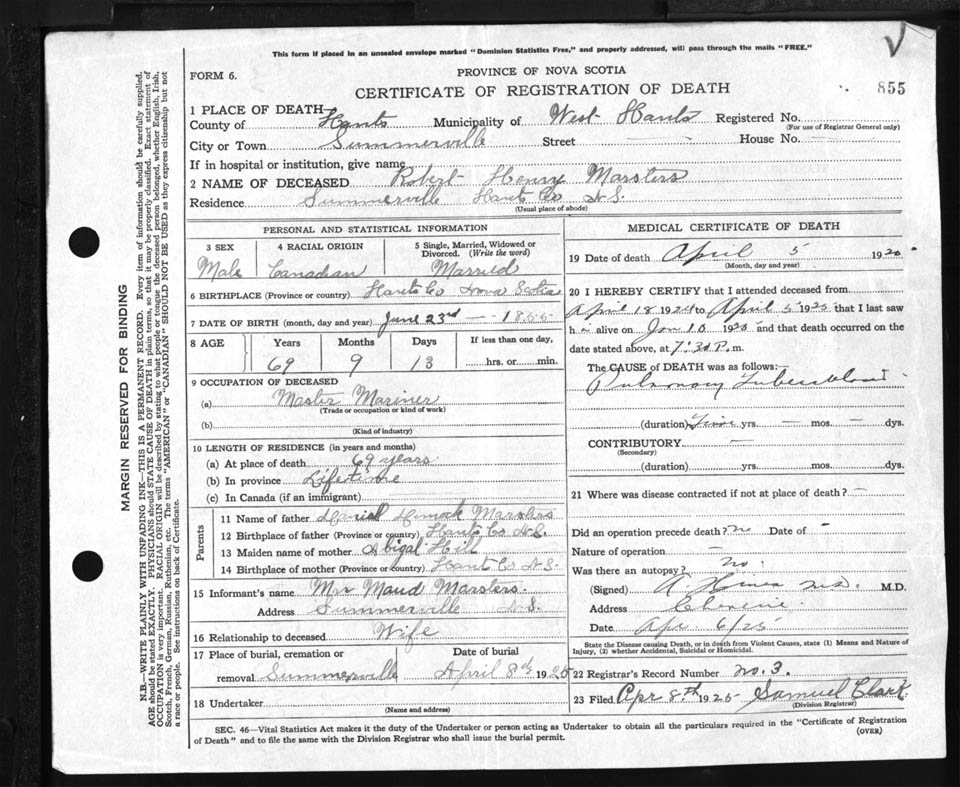 This form if placed in an unsealed envelope marked "Dominion Statistics Free," and properly addressed, will pass through the mails "FREE."
FORM 6.
PROVINCE OF NOVA SCOTIA
CERTIFICATE OF REGISTRATION OF DEATH
855
1 PLACE OF DEATH
County of Hants Municipality of West Hants Registered No.
(For use of Registrar General only)
City or Town Summerville Street House No.
If in hospital or institution, give name
2 NAME OF DECEASED Robert Henry Marsters
Residence Summerville Hants Co N.S.
(Usual place of abode)
PERSONAL AND STATISTICAL INFORMATION
3 SEX 4 RACIAL ORIGIN 5 Single, Married, Widowed or Divorced. (Write the word)
Male Canadian Married
6 BIRTHPLACE (Province or country) Hants Co Nova Scotia
7 DATE OF BIRTH (month, day and year) June 23rd — 1855
8 AGE Years Months Days If less than one day,
69 9 13 hrs. or min.
9 OCCUPATION OF DECEASED
(a) Master Mariner
(Trade or occupation or kind of work)
(b)
(Kind of industry)
10 LENGTH OF RESIDENCE (in years and months)
(a) At place of death 69 years
(b) In province Lifetime
(c) In Canada (if an immigrant)
Parents
11 Name of father Marsters
12 Birthplace of father (Province or country) Hants Co N.S.
13 Maiden name of mother Abigal Hill
14 Birthplace of mother (Province or country) Hants Co N.S.
15 Informant's name Mrs Maud Marsters.
Address Summerville N.S.
16 Relationship to deceased Wife
17 Place of burial, cremation or Date of burial
removal Summerville April 8th 1925
18 Undertaker
(Name and address)
MEDICAL CERTIFICATE OF DEATH
19 Date of death April 5 1925
(Month, day and year)
20 I HEREBY CERTIFY that I attended deceased from
April 18 1924 to April 5 1925 that I last saw
h alive on Jan 10 1925 and that death occurred on
date stated above, at 7:30 P. m.
The CAUSE OF DEATH was as follows:—
Pulmonary Tuberculosis
(duration) yrs. — mos. — dys.
CONTRIBUTORY —
(Secondary)
(duration) yrs. mos. dys.
21 Where was disease contracted if not at place of death? —
Did an operation precede death? no Date of –
Nature of operation —
Was there an autopsy? no.
(Signed) M.D.
Address Cheverie
Date Apr 6/25
State the Disease causing Death, or in death from Violent Causes, state (1) Means and Nature of
Injury, (2) whether Accidental, Suicidal or Homicidal.
22 Registrar's Record Number no. 3.
23 Filed Apr 8th 1925 Samuel Clark
(Division Registrar)
SEC. 46—Vital Statistics Act makes it the duty of the Undertaker or person acting as Undertaker to obtain all the particulars required in the "Certificate of Registration
of Death" and to file the same with the Division Registrar who shall issue the burial permit.
(OVER)
MARGIN RESERVED FOR BINDING
N.B.—WRITE PLAINLY WITH UNFADING INK—THIS IS A PERMANENT RECORD. Every item of information should be carefully supplied.
AGE should be stated EXACTLY. PHYSICIANS should STATE CAUSE OF DEATH in plain terms, so that it may be properly classified. Exact statement of
OCCUPATION is very important. RACIAL ORIGIN will be described by stating to what people or tongue the deceased person belonged, whether English, Irish,
Scotch, French, German, Russian, Ruthenian, etc. The terms "AMERICAN" or "CANADIAN" SHOULD NOT BE USED as they express citizenship but not
a race or people. See instructions on back of Certificate.